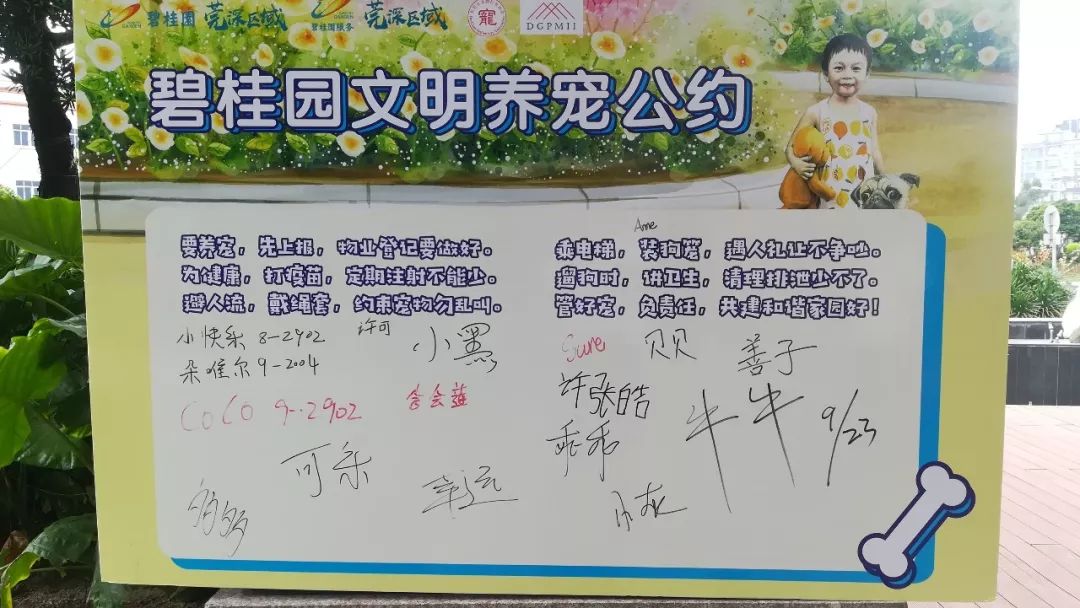 碧桂园 莞深区域 碧桂园服务 莞深区域 寵 DGPMII
碧桂园文明养宠公约
要养宠，先上报，物业登记要做好。
为健康，打疫苗，定期注射不能少。
避人流，戴绳套，约束宠物勿乱叫。
Ame
乘电梯，装狗笼，遇人礼让不争吵。
遛狗时，讲卫生，清理排泄少不了。
管好宠，负责任，共建和谐家园好！
小快乐 8-2902
许可
小黑
朵唯尔 9-2004
COCO 9-2902
可乐
幸运
多多
Sure
贝贝
善子
许张皓
乖乖
牛牛 9/23
小灰